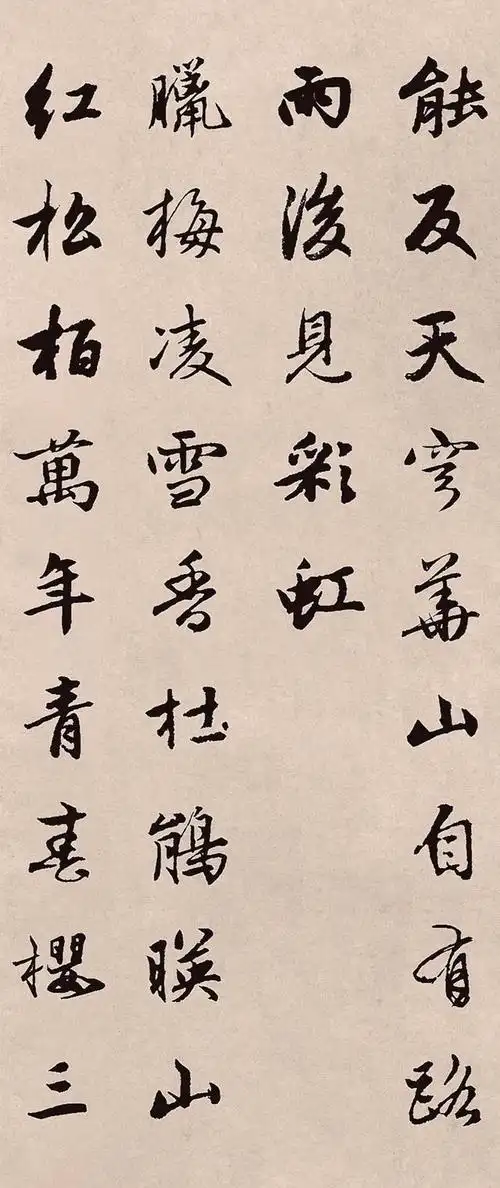 能反天穹華山自有路
雨後見彩虹
臘梅凌雪香杜鵑暎山
红松柏萬年青春櫻三